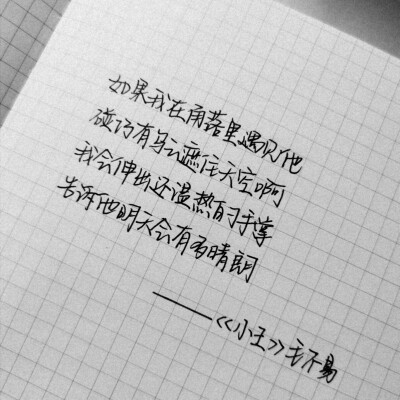 如果我在角落里遇见他
碰巧有乌云遮住天空啊
我会伸出还温热的手掌
告诉他明天会有多晴朗
——《小王》毛不易